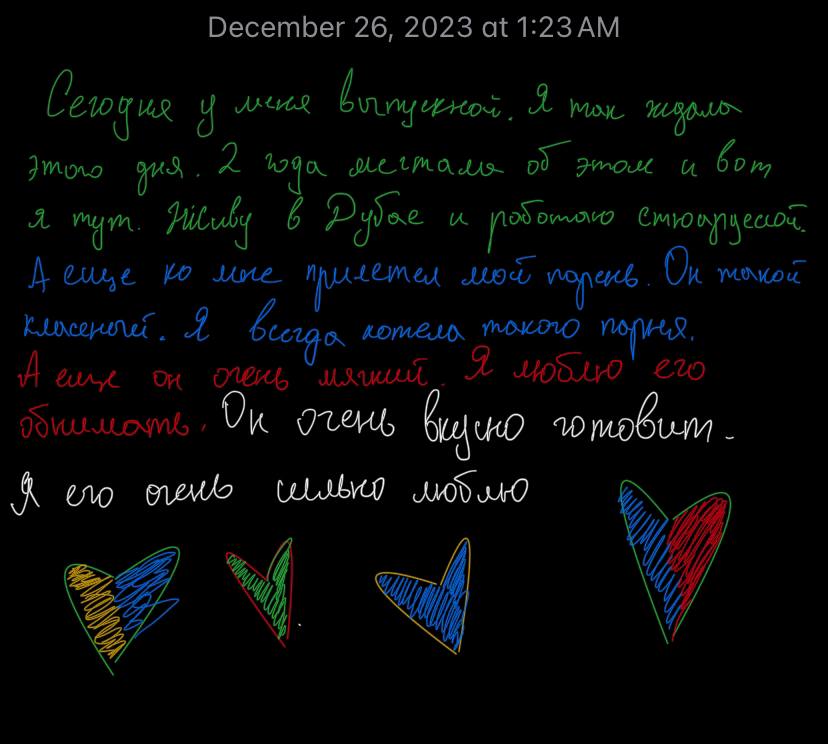 December 26, 2023 at 1:23 AM
Сегодня у меня выпускной. Я так ждала
этого дня. 2 года мечтала об этом и вот
я тут. Живу в Дубае и работаю стюардессой.
А еще ко мне прилетел мой парень. Он такой
класеный. Я всегда хотела такого парня.
А еще он очень мягкий. Я люблю его
обнимать. Он очень вкусно готовит.
Я его очень сильно люблю